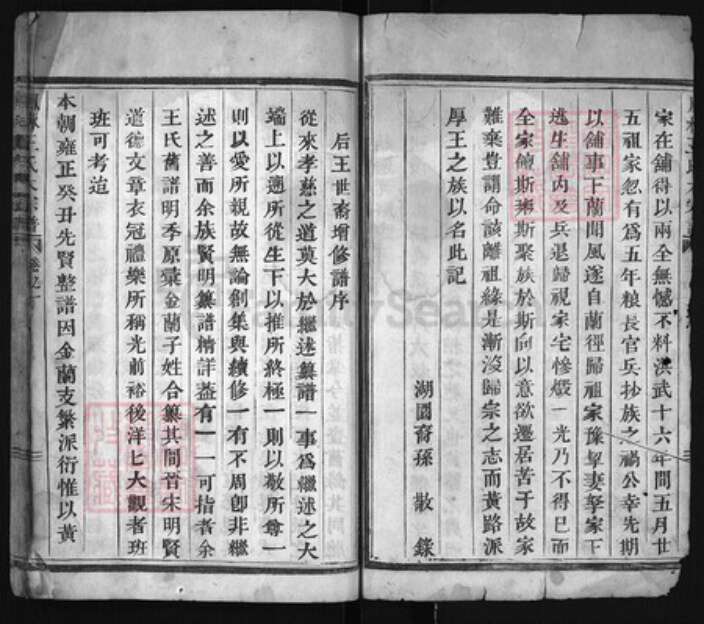 家在舖得以兩全無憾不料洪武十六年間五月廿
五祖家忽有為五年粮長官兵抄族之禍公幸先期
以舖事下蘭聞風遂自蘭徑歸祖家豫挈妻孥家下
逃生舖內及兵退歸視家宅慘燬一光乃不得巳而
全家饗斯粥斯聚族於斯向以意欲遷居苦于故家
難棄豈謂命該離祖緣是漸沒歸宗之志而黃路派
厚王之族以名此記
湖園裔孫 散 錄
后王世裔增修譜序
從來孝慈之道莫大於繼述纂譜一事為繼述之大
端上以遡所從生下以推所終極一則以敬所尊一
則以愛所親故無論創集與續修一有不周卽非繼
述之善而余族賢明纂譜精詳葢有一一可指者余
王氏舊譜明季原彙金蘭子姓合纂其間晉宋明賢
道德文章衣冠禮樂所稱光前裕後洋七大觀者班
班可考迨
本朝雍正癸丑先賢整譜因金蘭支繁派衍惟以黃